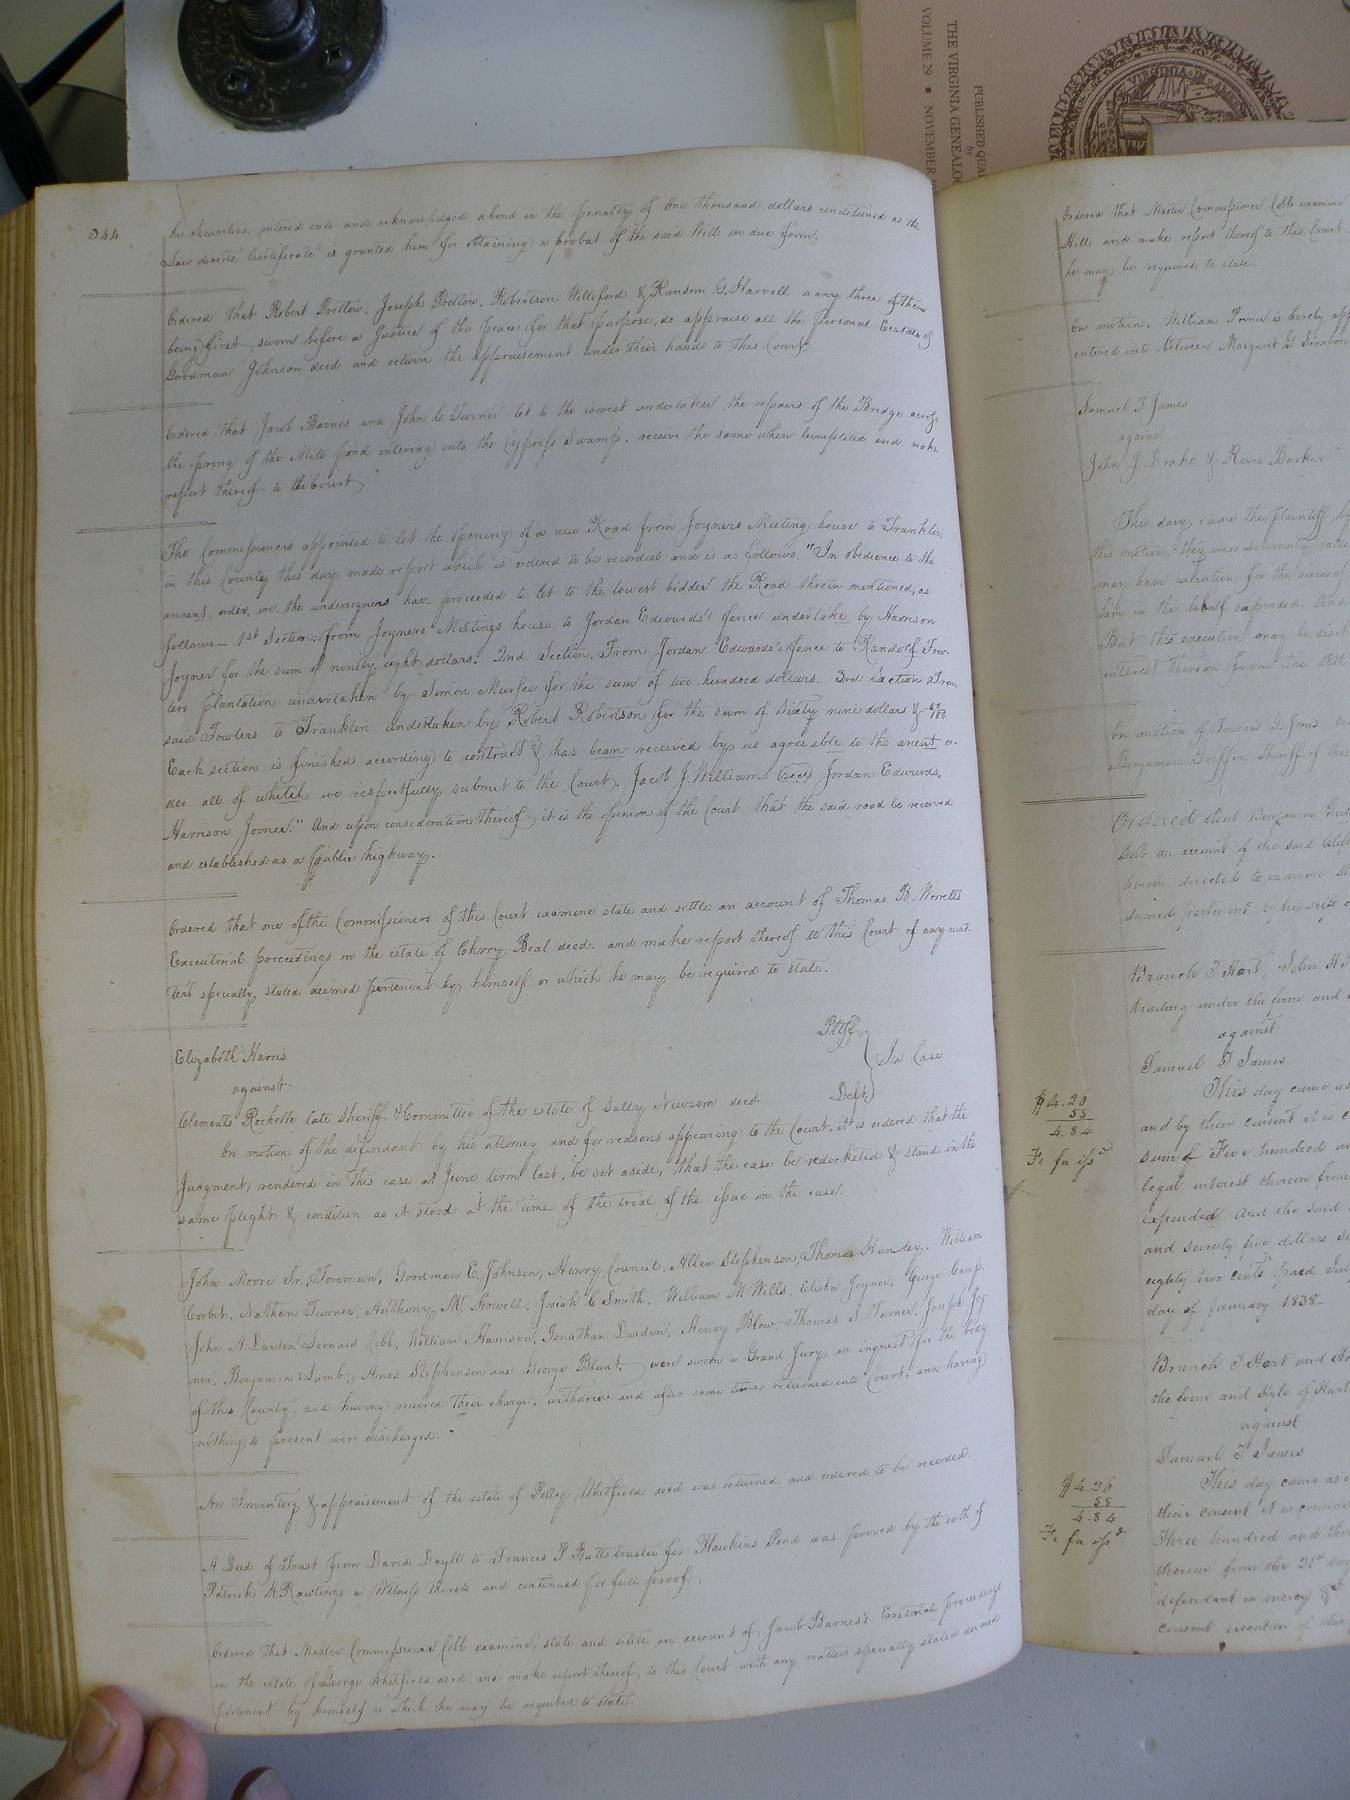 THE VIRGINIA GENEALOG
VOLUME 29 • NOVEMBER
PUBLISHED QUA
by
VIRGINIA IN
244
his Securities, entered into and acknowledged a bond in the penalty of One thousand dollars conditioned as the
Law directs. Certificate is granted him for obtaining a probat of the said Will in due form.
Ordered that Robert Pretlow, Joseph Pretlow, Robertson Williford & Ransom G. Harvell or any three of them
being first sworn before a Justice of the peace for that purpose, do appraise all the personal Estate of
Goodman Johnson decd and return the appraisement under their hands to this Court.
Ordered that Jacob Barnes and John C Turner let to the lowest undertaker the repairs of the Bridge across
the prong of the Mill pond entering into the Cypress Swamp, receive the same when completed and make
report thereof to the Court
The Commissioners appointed to let the opening of a new Road from Joyners Meeting house to Franklin
in this County this day made report which is ordered to be recorded and is as follows. "In obedience to the
annext order, we the undersigned have proceeded to let to the lowest bidder the Road therein mentioned, as
follows — 1st Section, from Joyners Meetings house to Jordan Edwards's fence undertake by Harrison
Joyner for the sum of ninety eight dollars. 2nd Section. From Jordan Edwards's fence to Randolf Fow-
lers plantation undertaken by Simon Murfee for the sum of two hundred dollars. 3rd Section From
said Fowlers to Franklin undertaken by Robert Robertson for the sum of Sixty nine dollars &
Each section is finished according to contract & has bean received by us agreeable to the anext or-
der all of whitch we respectfully submit to the Court. Jacob J Williams (seal) Jordan Edwards,
Harrison Joiner." And upon consideration thereof it is the opinion of the Court that the said road be received
and established as a public highway.
Ordered that one of the Commissioners of this Court examine state and settle an account of Thomas B. Worrells
Executorial proceedings on the estate of Chrry Beal decd. and make report thereof to this Court of any mat-
ters specially stated deemed pertenent by himself or which he may be required to state.
Elizabeth Harris Pltff
against In Case
Clements Rochelle late Sheriff & Committee of the estate of Sally Newsom decd Deft
On motion of the defendant by his attorney and for reasons appearing to the Court, it is ordered that the
Judgment, rendered in this case at June term last, be set aside, that the case be redocketed & stand in the
same plight & condition as it stood at the time of the trial of the issue in the case.
John Moore Sr., Foreman, Goodman E. Johnson, Henry Council, Allen Stephenson, Thomas Handcy, William
Corbet, Nathan Turner, Anthony M. Howell, Josiah C Smith, William M Wells, Elisha Joyner, George Camp,
John A Darden Leonard Cobb, William Harrison, Jonathan Darden, Henry Blow, Thomas S Turner, Joseph Joy-
ner, Benjamin Lamb, Amos Stephenson and George Blunt, were sworn a Grand Jury an inquest for the body
of this County and having received their charge, withdrew and after some time returned into Court, and having
nothing to present were discharged. -
An Inventory & appraisement of the estate of Polly Whitfield decd was returned and ordered to be recorded.
A Deed of Trust from David Doyll to Frances P Butts trustee for Hawkins Pond was proved by the oath of
Patrick H. Rawlings a Witness thereto and continued for full proof.
Ordered that Master Commissioner Cobb examine, state and settle an account of Jacob Barnes's Exetorial proceedings
on the estate of George Whitfield decd and make report thereof, to this Court with any matters specially stated deemed
pertenent by himself or which he may be required to state.
Ordered that Master Commissioner Cobb examine
Hill and make report thereof to this Court
he may be required to state.
On motion. William Prince is hereby app
entered into between Margaret G
Samuel T James
against
John J Drake & River Barker
This day came the plaintiff by
this motion, they were solemnly calle
may have execution for the sum of
him in this behalf expended. And
But this execution may be disch
interest thereon from the
On motion of Francis
Benjamin Griffin Sheriff of this
Ordered that Benjamin
Cobb an account of the said
hereby directed to examine st
deemed pertenent by himself o
Branch T Hart, John H
trading under the firm and
against
Samuel T James
This day came as
$4.26
58
4.84
Fi fa issd
and by their consent it is c
sum of Five hundred an
legal interest thereon from
expended And the said
and seventy five dollars
eighty two cents paid
day of January 1838-
Branch T Hart and
the firm and stile of Hart
against
Samuel T James
This day came as
$4.26
58
4.84
Fi fa issd
their consent it is consider
Three hundred and thi
thereon from the 21st day
defendant in mercy &c
consent execution of this